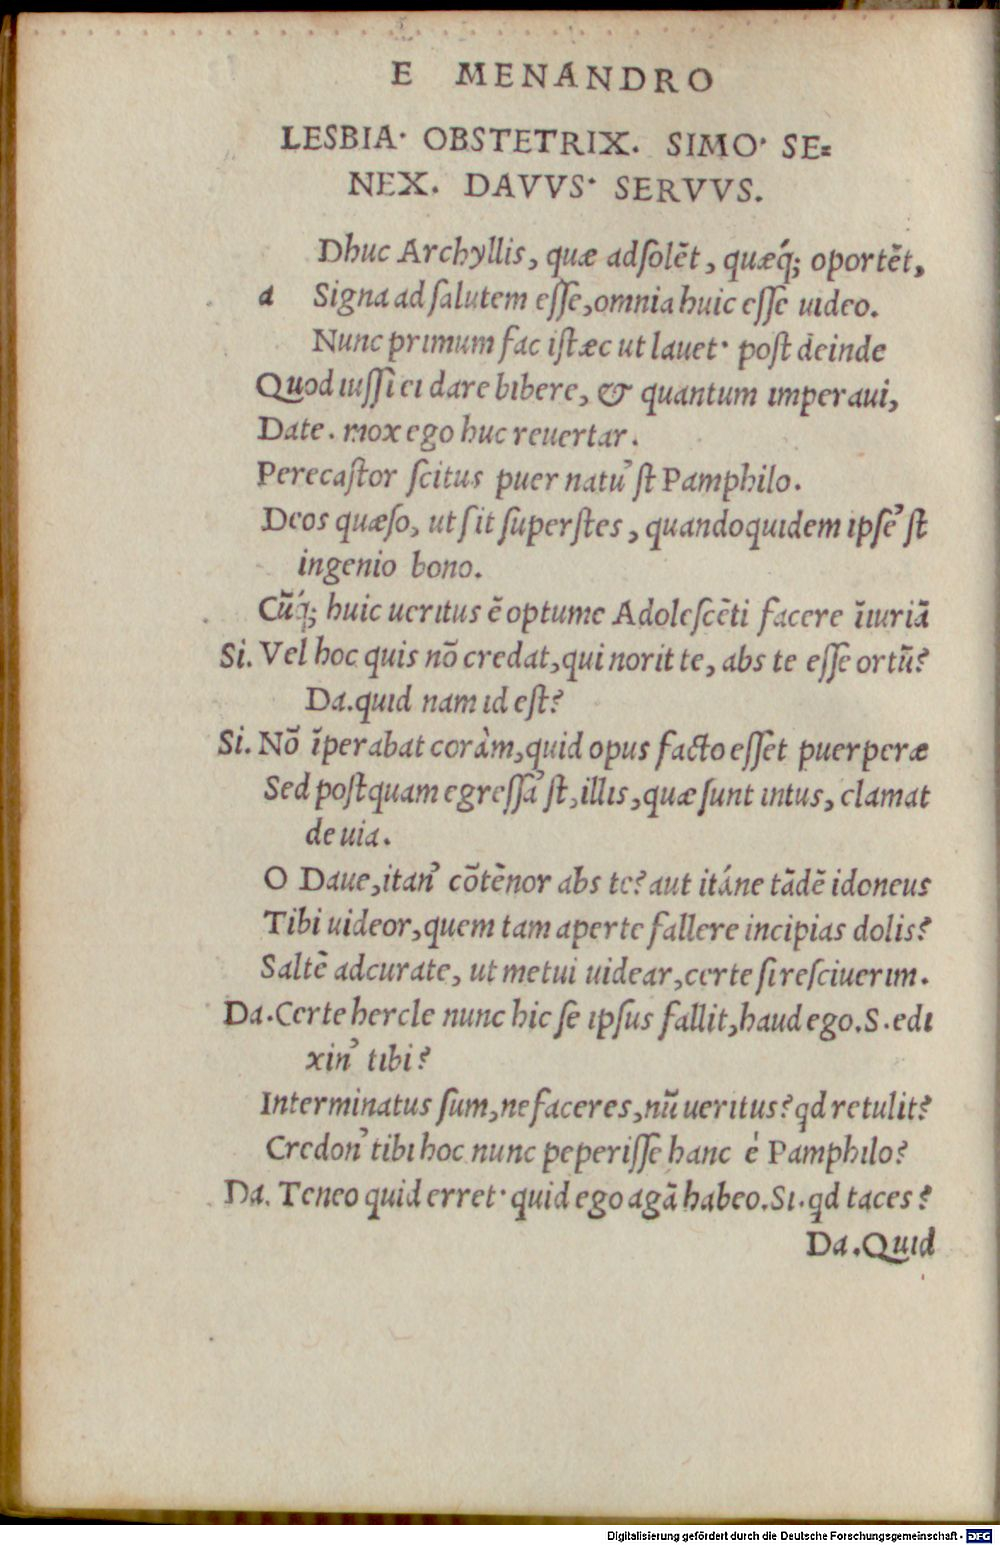 E MENANDRO
LESBIA· OBSTETRIX. SIMO· SE=
NEX. DAVVS· SERVVS.
Dhuc Archyllis, quæ adſolēt, quæq́; oportēt,
a Signa ad ſalutem eſſe, omnia huic eſſe uideo.
Nunc primum fac iſtæc ut lauet· poſt deinde
Quod iuſſi ei dare bibere, & quantum imperaui,
Date. mox ego huc reuertar.
Perecaſtor ſcitus puer natu᾽ſt Pamphilo.
Deos quæſo, ut ſit ſuperſtes, quandoquidem ipſe᾽ſt
ingenio bono.
Cūq́; huic ueritus ē optume Adoleſcēti facere īiuriā
Si. Vel hoc quis nō credat, qui norit te, abs te eſſe ortū?
Da. quid nam id eſt?
Si. Nō īperabat coràm, quid opus facto eſſet puerperæ
Sed poſtquam egreſſa᾽ſt, illis, quæ ſunt intus, clamat
de uia.
O Daue, itan᾽ cōtēnor abs te? aut itáne tādē idoneus
Tibi uideor, quem tam aperte fallere incipias dolis?
Saltē adcurate, ut metui uidear, certe ſi reſciuerim.
Da. Certe hercle nunc hic ſe ipſus fallit, haud ego. S. edi
xin᾽ tibi?
Interminatus ſum, ne faceres, nū ueritus? qd retulit?
Credon᾽ tibi hoc nunc peperiſſe hanc è Pamphilo?
Da. Teneo quid erret· quid ego agā habeo. Si. qd taces?
Da. Quid
Digitalisierung gefördert durch die Deutsche Forschungsgemeinschaft - DFG